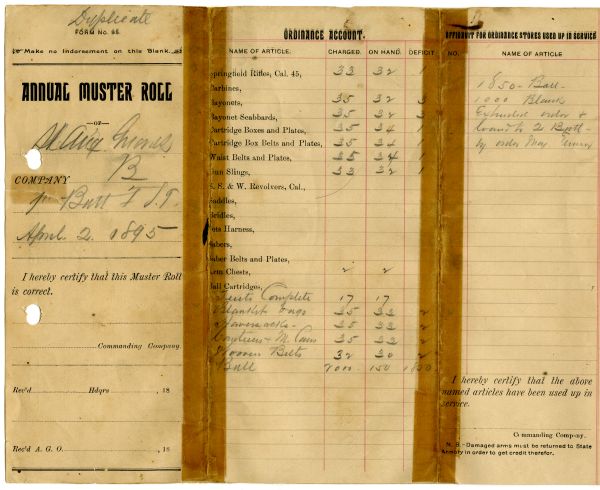 Duplicate
FORM No. 66.
Make no Indorsement on this Blank.
ANNUAL MUSTER ROLL
—OF—
St Aug
B
COMPANY
Batt F S.T.
April. 2. 1895
I hereby certify that this Muster Roll
is correct.
Commanding Company.
Rec'd Hdqrs , 18
Rec'd A. G. O. , 18
ORDINANCE ACCOUNT.
NAME OF ARTICLE. CHARGED. ON HAND. DEFICIT
Springfield Rifles, Cal. 45, 33 32 1
Carbines,
Bayonets, 35 32 3
Bayonet Scabbards, 35 32 3
Cartridge Boxes and Plates, 35 34 1
Cartridge Box Belts and Plates, 35 34
Waist Belts and Plates, 35 34 1
Gun Slings, 33 32 1
S. & W. Revolvers, Cal.,
Saddles,
Bridles,
Sets Harness,
Sabers,
Saber Belts and Plates,
Arm Chests, 2 2
Ball Cartridges,
Tents Complete 17 17
Blanket Bags 35 33 2
Haversacks 35 33 2
Canteens & M. Cans 35 33 2
Woven Belts 32 30 2
Ball 2000 150 1850
AFFIDAVIT FOR ORDINANCE STORES USED UP IN SERVICE
NO. NAME OF ARTICLE
1850 - Ball -
1000 Blank
Expended order &
Loaned to 2 Batt -
by order Maj.
I hereby certify that the above
named articles have been used up in
service.
Commanding Company.
N. B.–Damaged arms must be returned to State
Armory in order to get credit therefor.